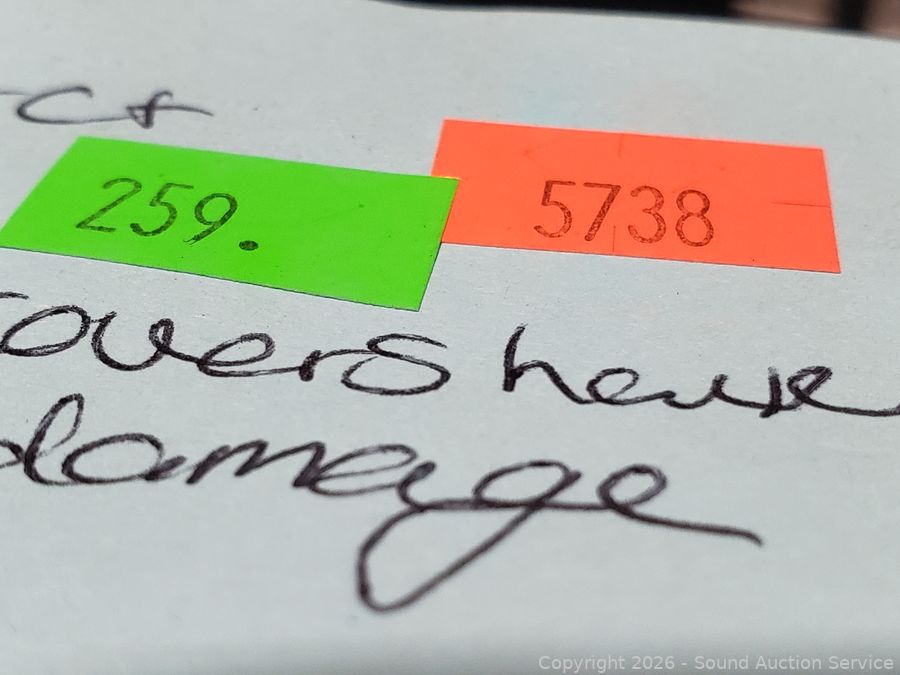 ct
259. 5738
covers have
damage
Copyright 2026 - Sound Auction Service